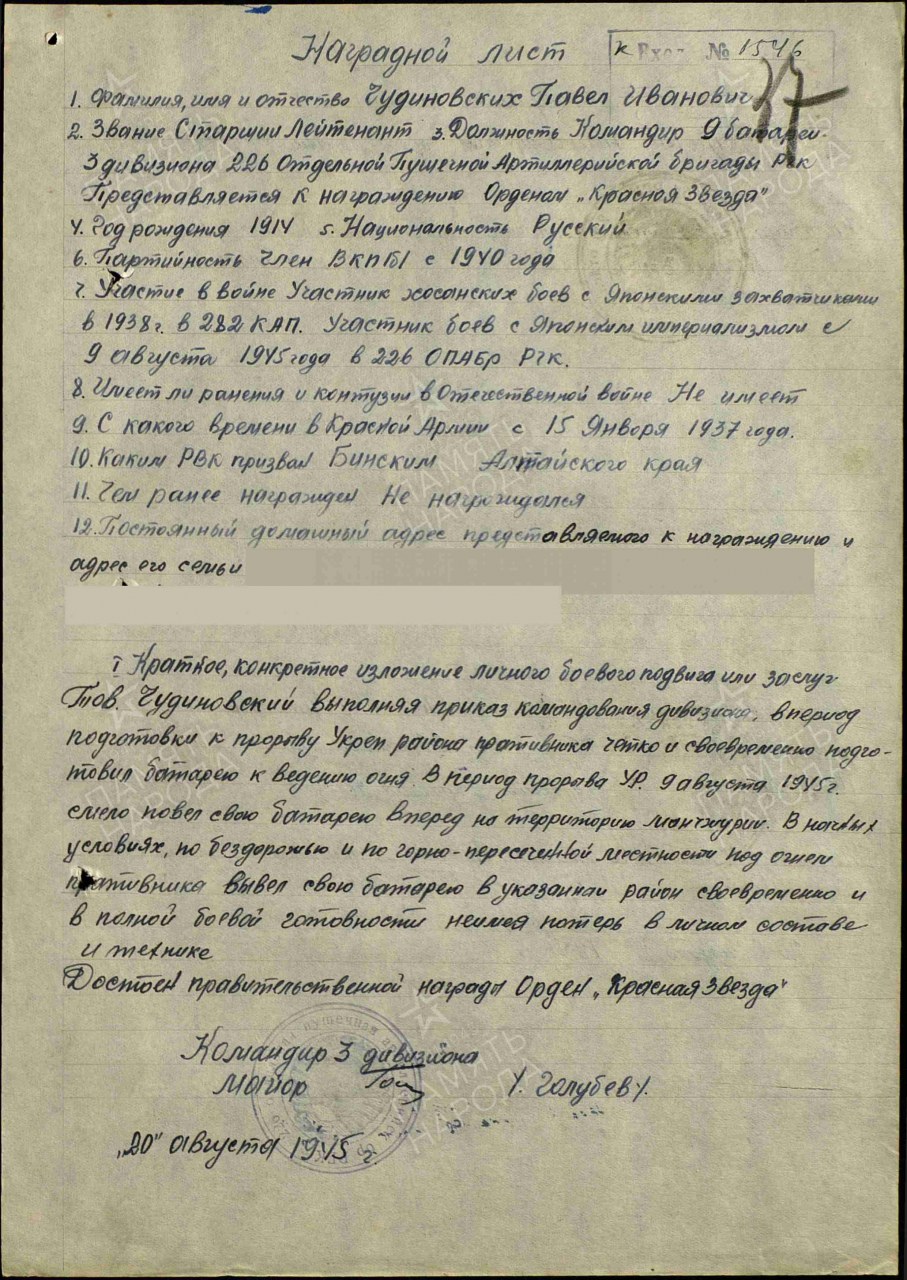 Наградной лист
к Вход № 1546
37
1. Фамилия, имя и отчество Чудиновских Павел Иванович
2. Звание Старший Лейтенант 3. Должность Командир 9 батареи
3 дивизиона 226 Отдельной Пушечной Артиллерийской бригады РГК
Представляется к награждению Орденом „Красная Звезда"
4. Год рождения 1914 5. Национальность Русский
6. Партийность Член ВКП(б) с 1940 года
7. Участие в войне Участник хосанских боев с Японскими захватчиками
в 1938г. в 282 КАП. Участник боев с Японским империализмом с
9 августа 1945 года в 226 ОПАБр РГК.
8. Имеет ли ранения и контузии в Отечественной войне Не имеет
9. С какого времени в Красной Армии с 15 Января 1937 года.
10. Каким РВК призван Бинским Алтайского края
11. Чем ранее награжден Не награждался
12. Постоянный домашный адрес представляемого к награждению и
адрес его семьи
I Краткое, конкретное изложение личного боевого подвига или заслуг
Тов. Чудиновский выполняя приказ командования дивизиона, в период
подготовки к прорыву Укреп района пративника четко и своевременно подго-
товил батарею к ведению огня. В период прорыва УР. 9 августа 1945г.
смело повел свою батарею вперед на территорию манчжурии. В начных
условиях, по бездорожью и по горно-пересеченной местности под огнем
пративника вывел свою батарею в указаннаи район своевременно и
в полной боевой готовности неимея потерь в личном составе
и технике
Достоен правительственной награды Орден „Красная Звезда"
Командир 3 дивизиона
Майор /. Голубев /.
„20" августа 1945 г.
ПАМЯТЬ
НАРОДА